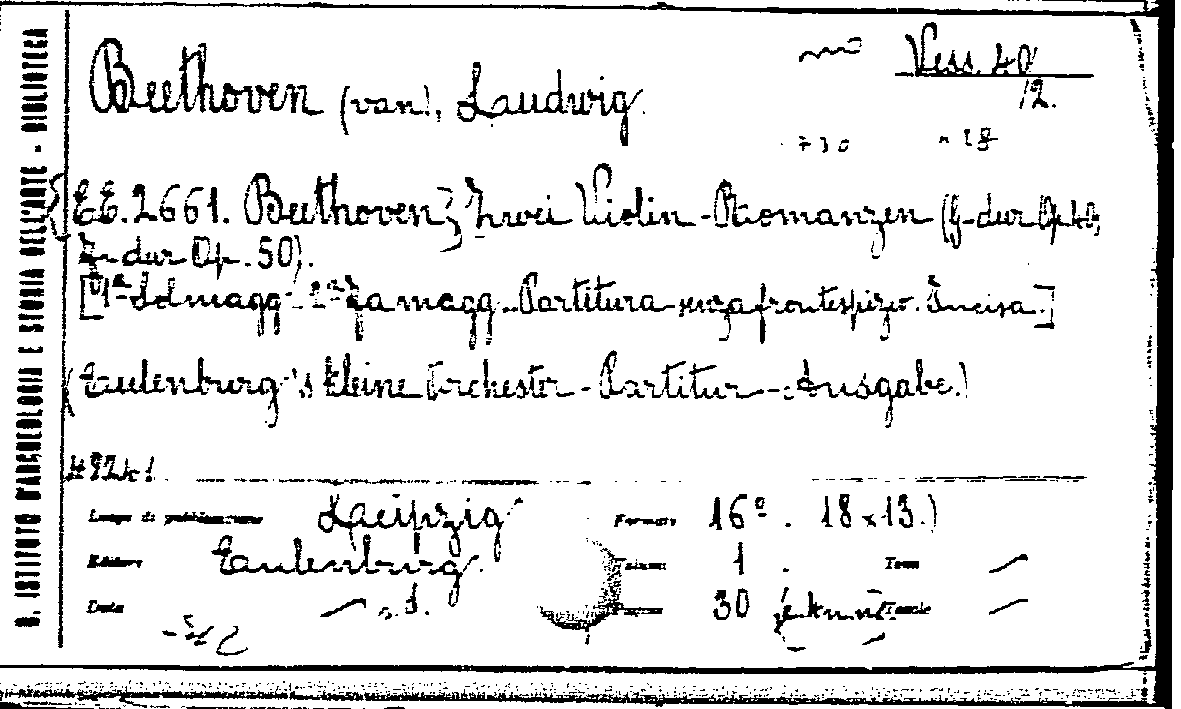 R. ISTITUTO D'ARCHEOLOGIA E STORIA DELL'ARTE - BIBLIOTECA
Vess. 40
12.
Beethoven (van), Laudwig.
730 28
{E.E. 2661. Beethoven} Zwei Violin-Romanzen (G-dur Op. 40,
F-dur Op. 50).
[1ª Sol magg. 2ª Fa magg. Partitura senza frontespizio. Incisa.]
(Eulenburg's kleine Orchester-Partitur-Ausgabe.)
Luogo di pubblicazione Leipzig Formato 16º. 18x13.)
Editore Eulenburg. Volumi 1. Tomi
Data s.d. 30 Tavole